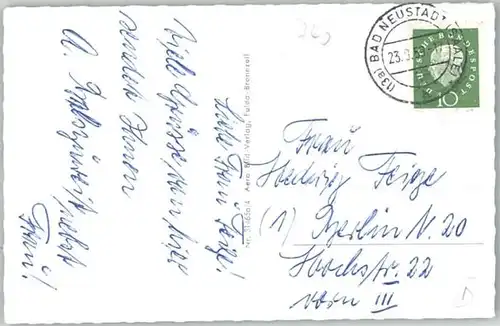 (13a) BAD NEUSTADT (SAALE)
23.9.
DEUTSCHE BUNDESPOST
10
Liebe Frau Feige!
Viele Grüsse von hier
sendet Ihnen
A.
Frau!
Nr. Aero Bild-Verlag, Fulda-Bronnzell
Frau
Hedwig Feige
(1) Berlin N. 20
Hochstr. 22
vorn III